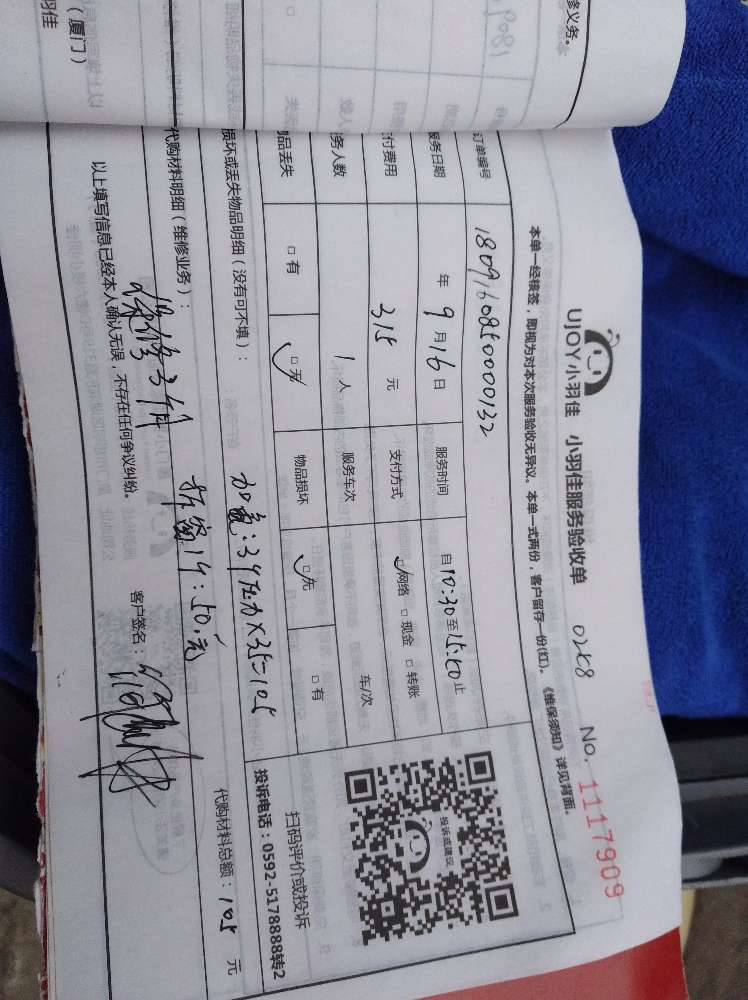 UJOY小羽佳 小羽佳服务验收单 0258 No. 1117909
本单一经核签，即视为对本次服务验收无异议。本单一式两份，客户留存一份(红)。《维保须知》详见背面。
订单编号 18091608500000132
服务日期 年 9月16日 服务时间 自10:30至15:50止
付费用 315 元 支付方式 ☑网络 □现金 □转账
务人数 1人 服务车次 车/次
物品丢失 □有 ☑无 物品损坏 ☑无 □有
投诉或建议
扫码评价或投诉
投诉电话：0592-5178888转2
损坏或丢失物品明细（没有可不填）：
加氟：3个压力×35=105
代购材料明细（维修业务）：
代购材料总额：105 元
1个：50元
以上填写信息已经本人确认无误，不存在任何争议纠纷。 客户签名：
修义务。
（厦门）
羽佳